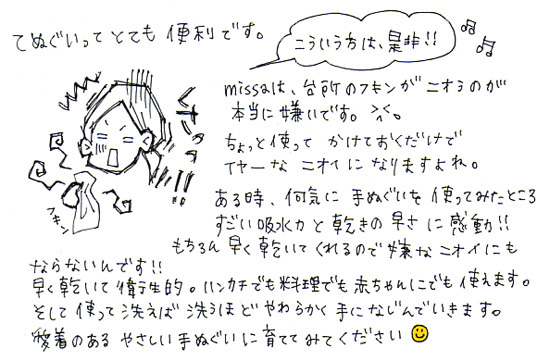 てぬぐいって とても 便利です。
こういう方は、是非!!
missaは、台所のフキンがニオうのが
本当に嫌いです。
ちょっと使って かけておくだけで
イヤーな ニオイ になりますよね。
ある時、何気に 手ぬぐいを 使ってみたところ
すごい吸水力と 乾きの 早さ に 感動!!
フキン
もちろん 早く乾いて くれるので 嫌な ニオイにも
ならないんです!!
早く乾いて 衛生的。ハンカチでも料理でも 赤ちゃんにでも 使えます。
そして 使って 洗えば 洗うほど やわらかく 手になじんでいきます。
愛着のある やさしい 手ぬぐいに 育ててみてください